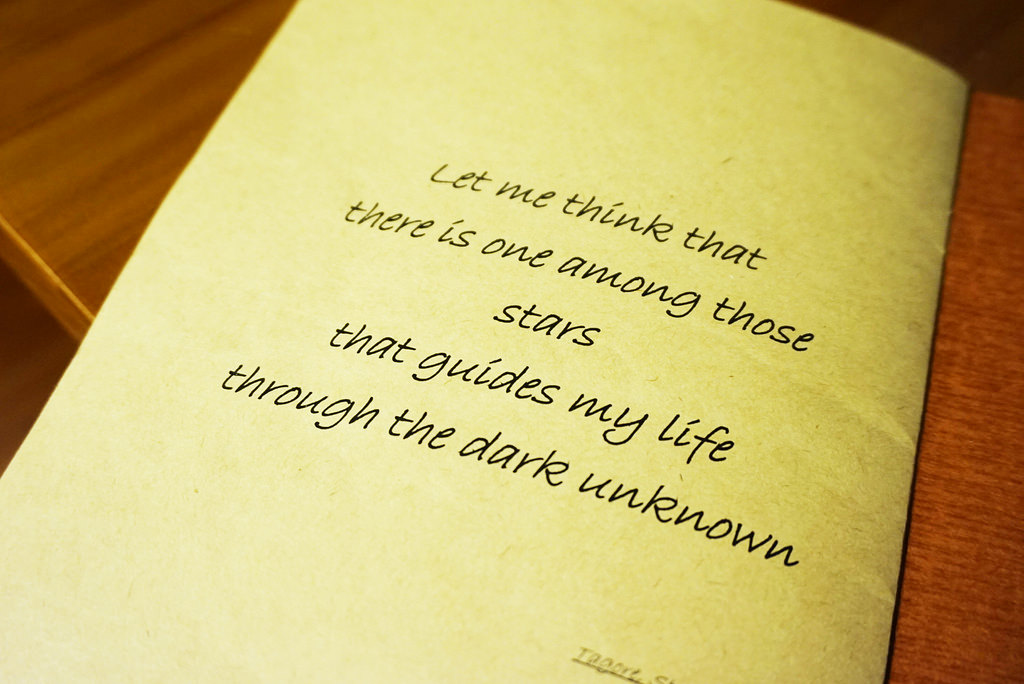 Let me think that
there is one among those
stars
that guides my life
through the dark unknown
Tagore